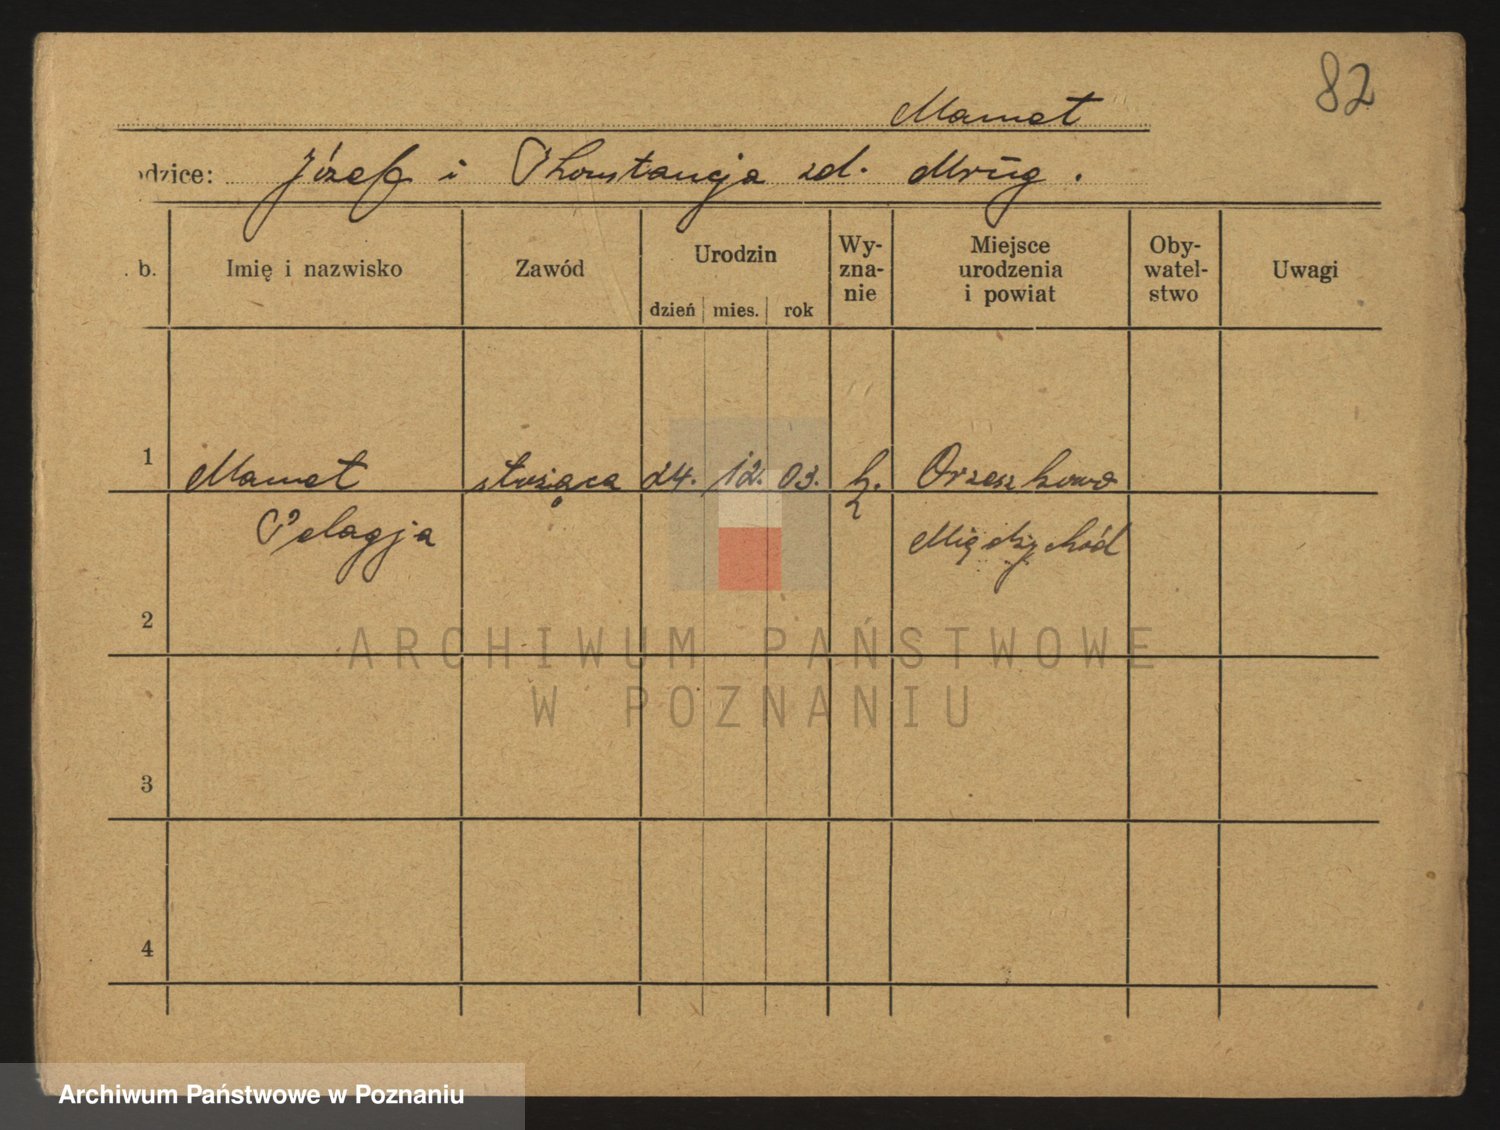 82
Mamet
odzice: Józef i Konstancja zd. Mrug.
. b. Imię i nazwisko Zawód Urodzin dzień mies. rok Wy-zna-nie Miejsce urodzenia i powiat Oby-watel-stwo Uwagi
1 Mamet służąca 24. 12. 03. k. Orzeszkowo
Pelagja Międzychód
2
ARCHIWUM PAŃSTWOWE
W POZNANIU
3
4
Archiwum Państwowe w Poznaniu